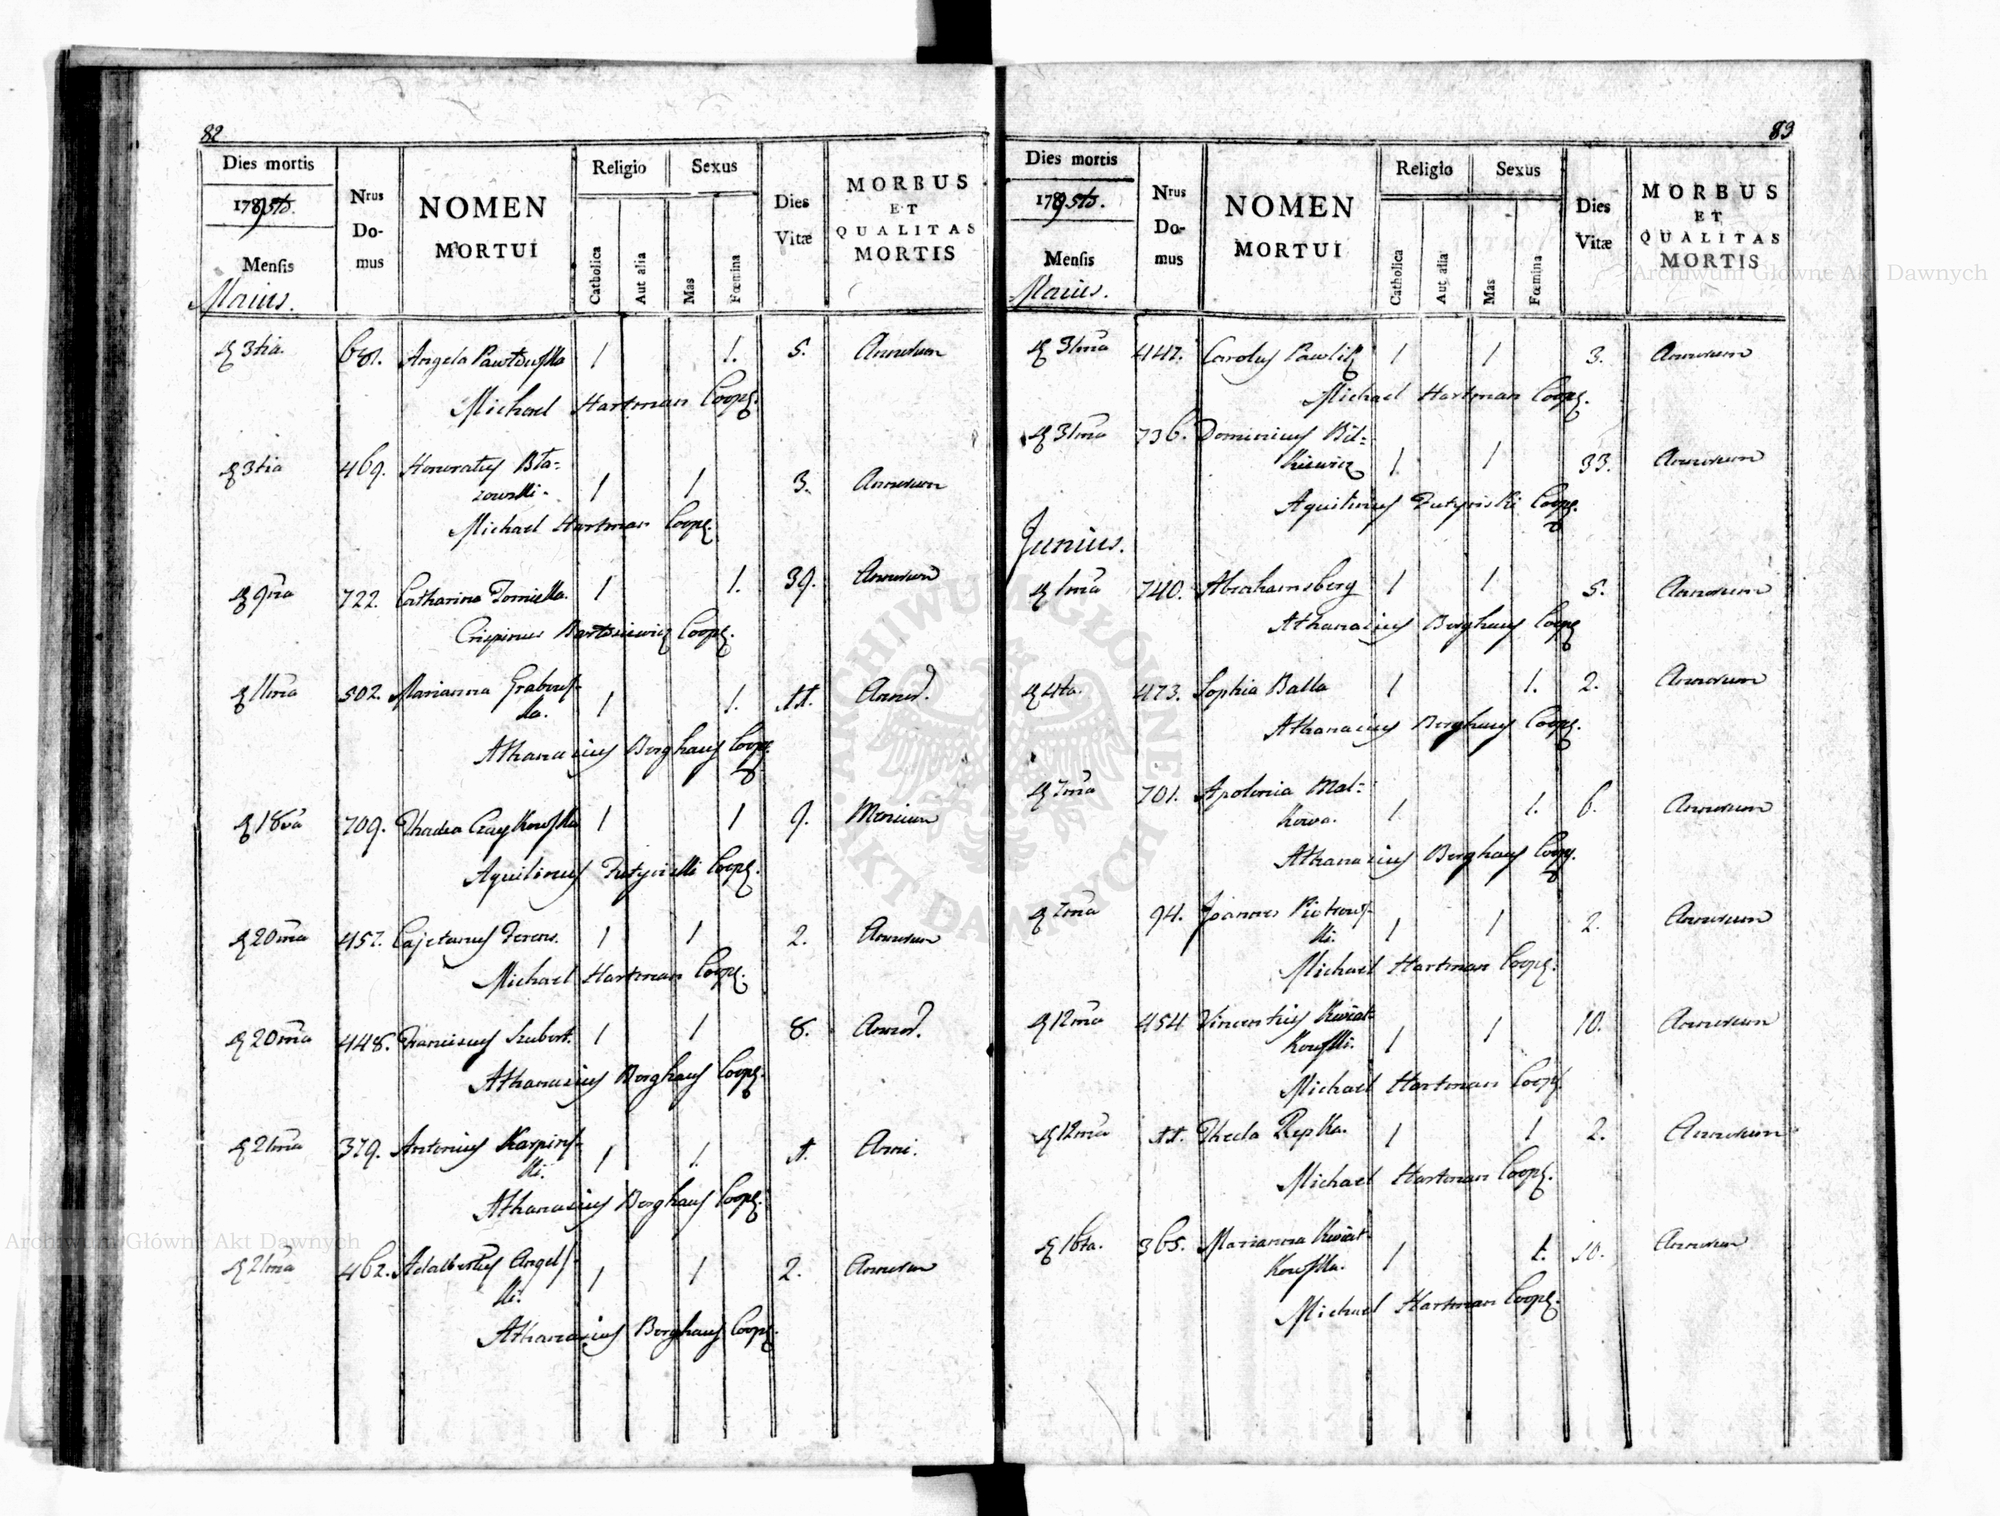 82
Dies mortis
Religio
Sexus
Nrus Domus
NOMEN MORTUI
Dies Vitæ
MORBUS ET QUALITAS MORTIS
Catholica
Aut alia
Mas
Fœmina
Mensis
Maius.
3tia. 681. Angela 1 1. 5. Annorum
Michael Hartman Coop.
3tia 469. Honoratus Bła=
zowski. 1 1 3. Annorum
Michael Hartman Coop.
9na 722. Catharina 1 1. 39. Annorum
Crispinus Coop.
11ma 502. Marianna Grabows-
ka. 1 1. Annor.
Athanasius Borghaus Coop.
18va 709. 1 1 9. Mensium
Aquilinus Coop.
20ma 457. Cajetanus Ferens. 1 1 2. Annorum
Michael Hartman Coop.
20ma 448. Franciscus Szubert. 1 1 8. Annor.
Athanasius Borghaus Coop.
21ma 379. Antonius Karpins-
ki. 1 1. Anni.
Athanasius Borghaus Coop.
21ma 462. Adalbertus Angels-
ki. 1 1 2. Annorum
Athanasius Borghaus Coop.
83
Dies mortis
Religio
Sexus
Nrus Domus
NOMEN MORTUI
Dies Vitæ
MORBUS ET QUALITAS MORTIS
Catholica
Aut alia
Mas
Fœmina
Mensis
Maius.
31ma 447. Carolus Pawlik 1 1 3. Annorum
Michael Hartman Coop.
31ma 736. Dominicus Bil=
kiewicz 1 1 33. Annorum
Aquilinus Coop.
Junius.
1ma 740. Abrahamsberg 1 1 5. Annorum
Athanasius Borghaus Coop
4ta. 473. Sophia Balla 1 1. 2. Annorum
Athanasius Borghaus Coop.
7ma 701. Apolonia Mal=
kowa. 1 1. 6. Annorum
Athanasius Borghaus Coop.
7ma 94. Joannes Piotrows-
ki. 1 1 2. Annorum
Michael Hartman Coop.
12ma 454 Vincentius Kwiat-
kowski. 1 1 10. Annorum
Michael Hartman Coop.
12ma Thecla Rzepka. 1 1 2. Annorum
Michael Hartman Coop.
16ta. 365. Marianna Kwiat-
kowska. 1 1. 10. Annorum
Michael Hartman Coop.
Archiwum Główne Akt Dawnych
Archiwum Główne Akt Dawnych
ARCHIWUM GŁÓWNE AKT DAWNYCH